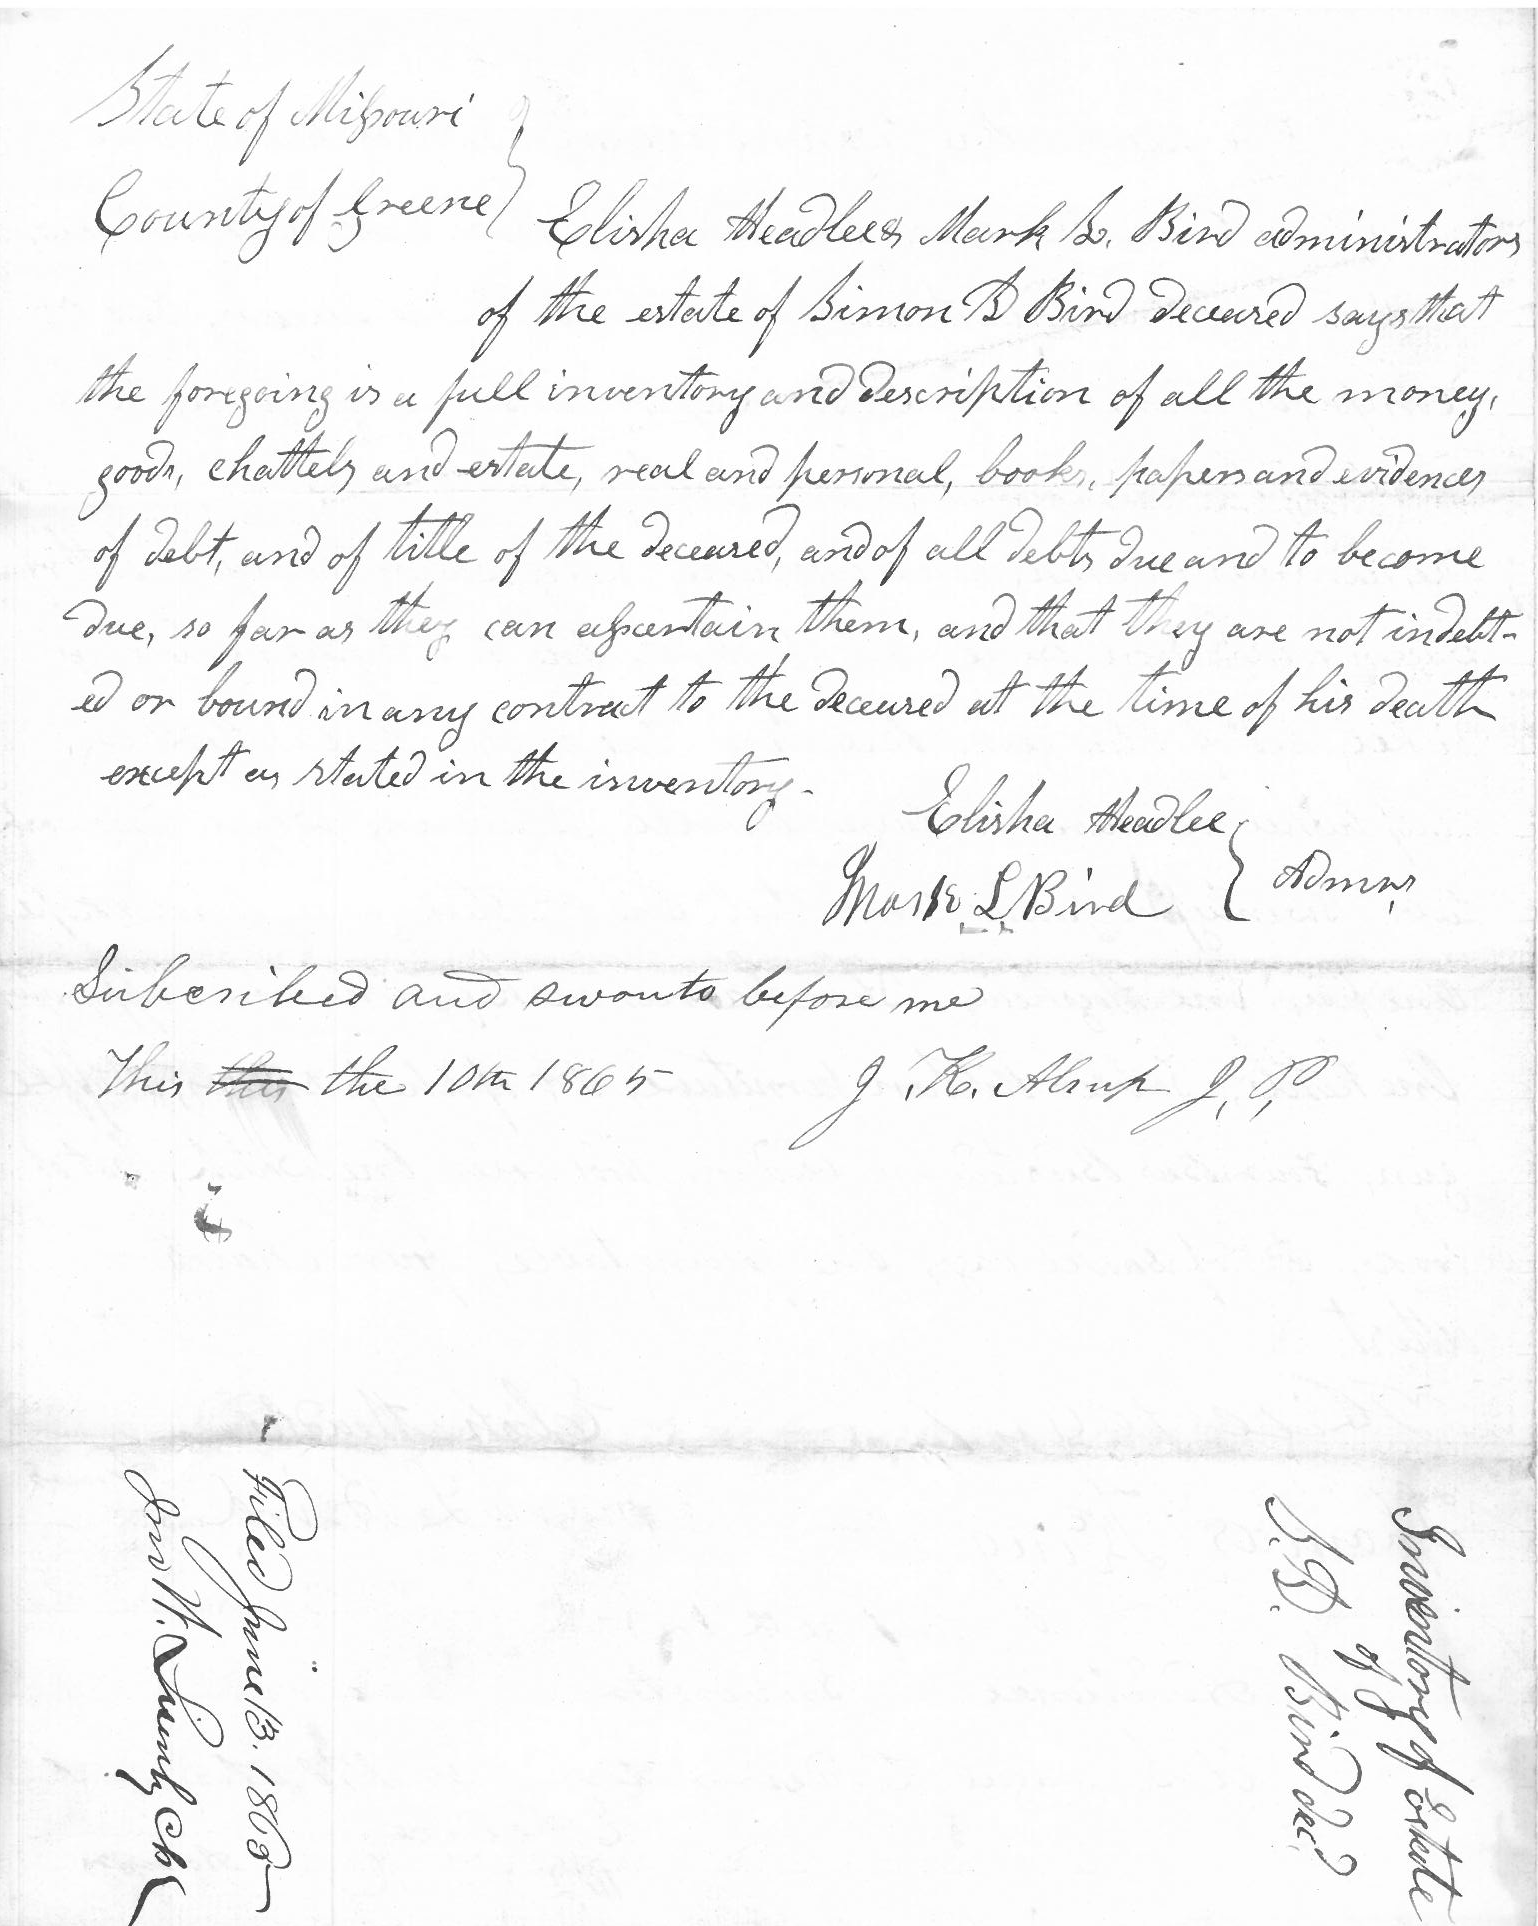 State of Missouri
County of Greene
Elisha Headlee & Mark L. Bird administrators
of the estate of Simon B Bird deceased says that
the foregoing is a full inventory and description of all the money,
goods, chattels and estate, real and personal, books, papers and evidences
of debt, and of title of the deceased, and of all debts due and to become
due, so far as they can assertain them, and that they are not indebt-
ed or bound in any contract to the deceased at the time of his death
except as stated in the inventory.
Elisha Headlee
Mark L Bird
Admrs
Subcribed and swon to before me
This this the 10th 1865
J. K. Alsup J. P.
Filed June 13. 1865
Jno W. Lisenby Clk
Inventory of Estate
of
S. B. Bird decd